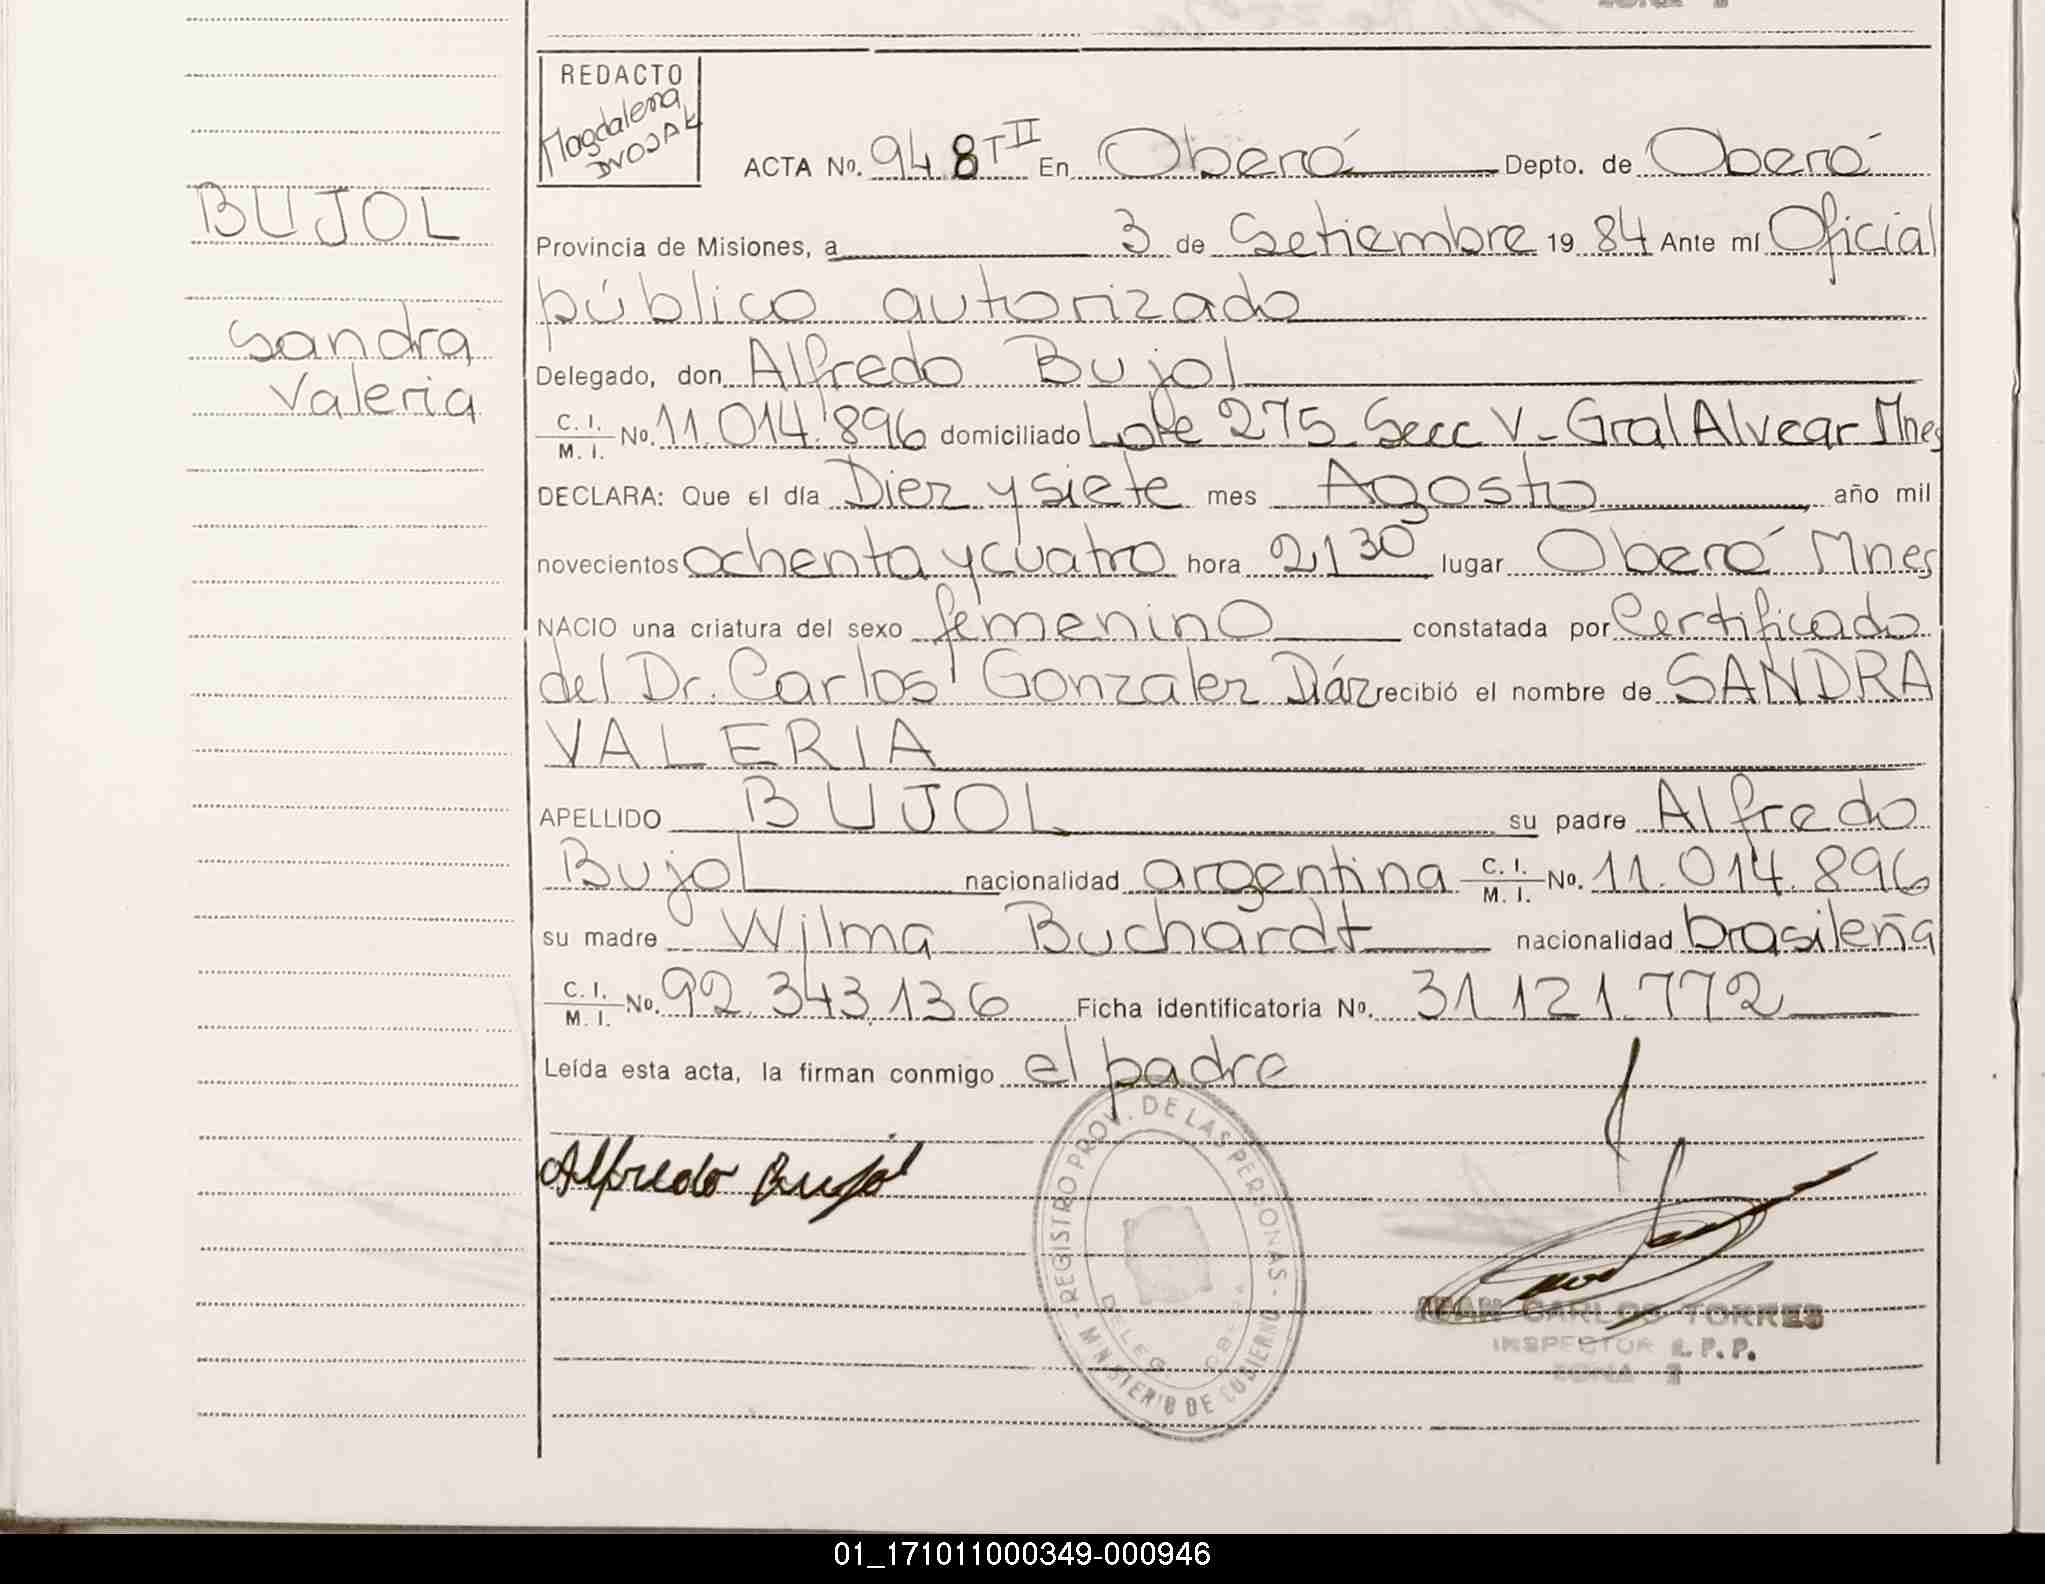 REDACTO
Magdalena
DVOJAK
ACTA No. 948 T II En Oberá Depto. de Oberá
BUJOL
Provincia de Misiones, a 3 de Setiembre 19 84 Ante mí Oficial
público autorizado
Sandra
Valeria
Delegado, don Alfredo Bujol
C. I. M. I. No. 11.014.896 domiciliado Lote 275 Secc V - Gral Alvear Mnes
DECLARA: Que el día Diez y siete mes Agosto año mil
novecientos ochenta y cuatro hora 21 30 lugar Oberá Mnes
NACIO una criatura del sexo femenino constatada por Certificado
del Dr. Carlos Gonzalez Díaz recibió el nombre de SANDRA
VALERIA
APELLIDO BUJOL su padre Alfredo
Bujol nacionalidad argentina C. I. M. I. No. 11.014.896
su madre Wilma Buchardt nacionalidad brasileña
C. I. M. I. No. 92.343.136 Ficha identificatoria No. 31.121.772
Leída esta acta, la firman conmigo el padre
Alfredo Bujol
REGISTRO PROV. DE LAS PERSONAS - MINISTERIO DE GOBIERNO
DELEG.
JUAN CARLOS TORRES
INSPECTOR R. P. P.
ZONA
01_171011000349-000946